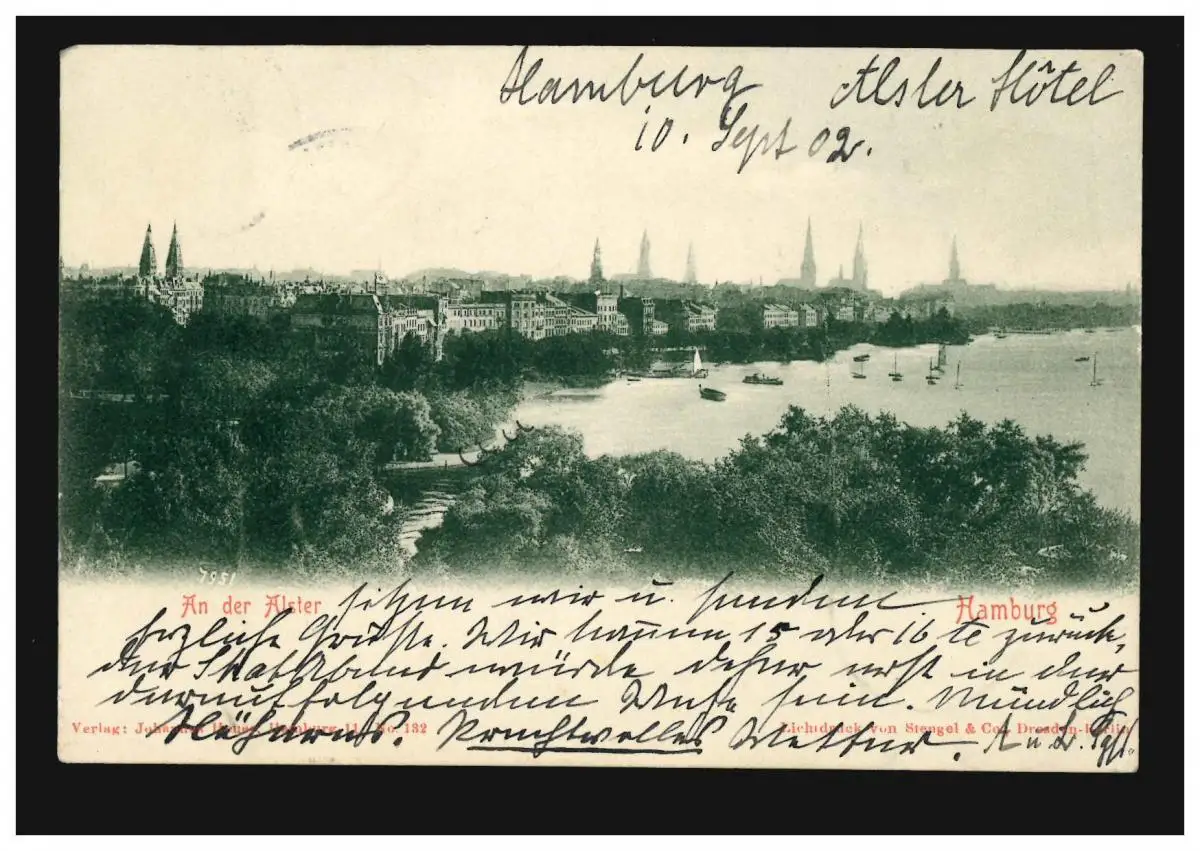 Hamburg Alster Hôtel
10. Sept 02.
7951
An der Alster
Hamburg
sitzen wir u. senden
herzliche Grüße. Wir kommen 15 oder 16te zurück,
der Skatabend würde daher erst in der
darauffolgenden Woche sein. Mündlich
Näheres. Prachtvolles Wetter.
Verlag: Hamburg No. 132
Lichtdruck von Stengel & Co., Dresden-Berlin